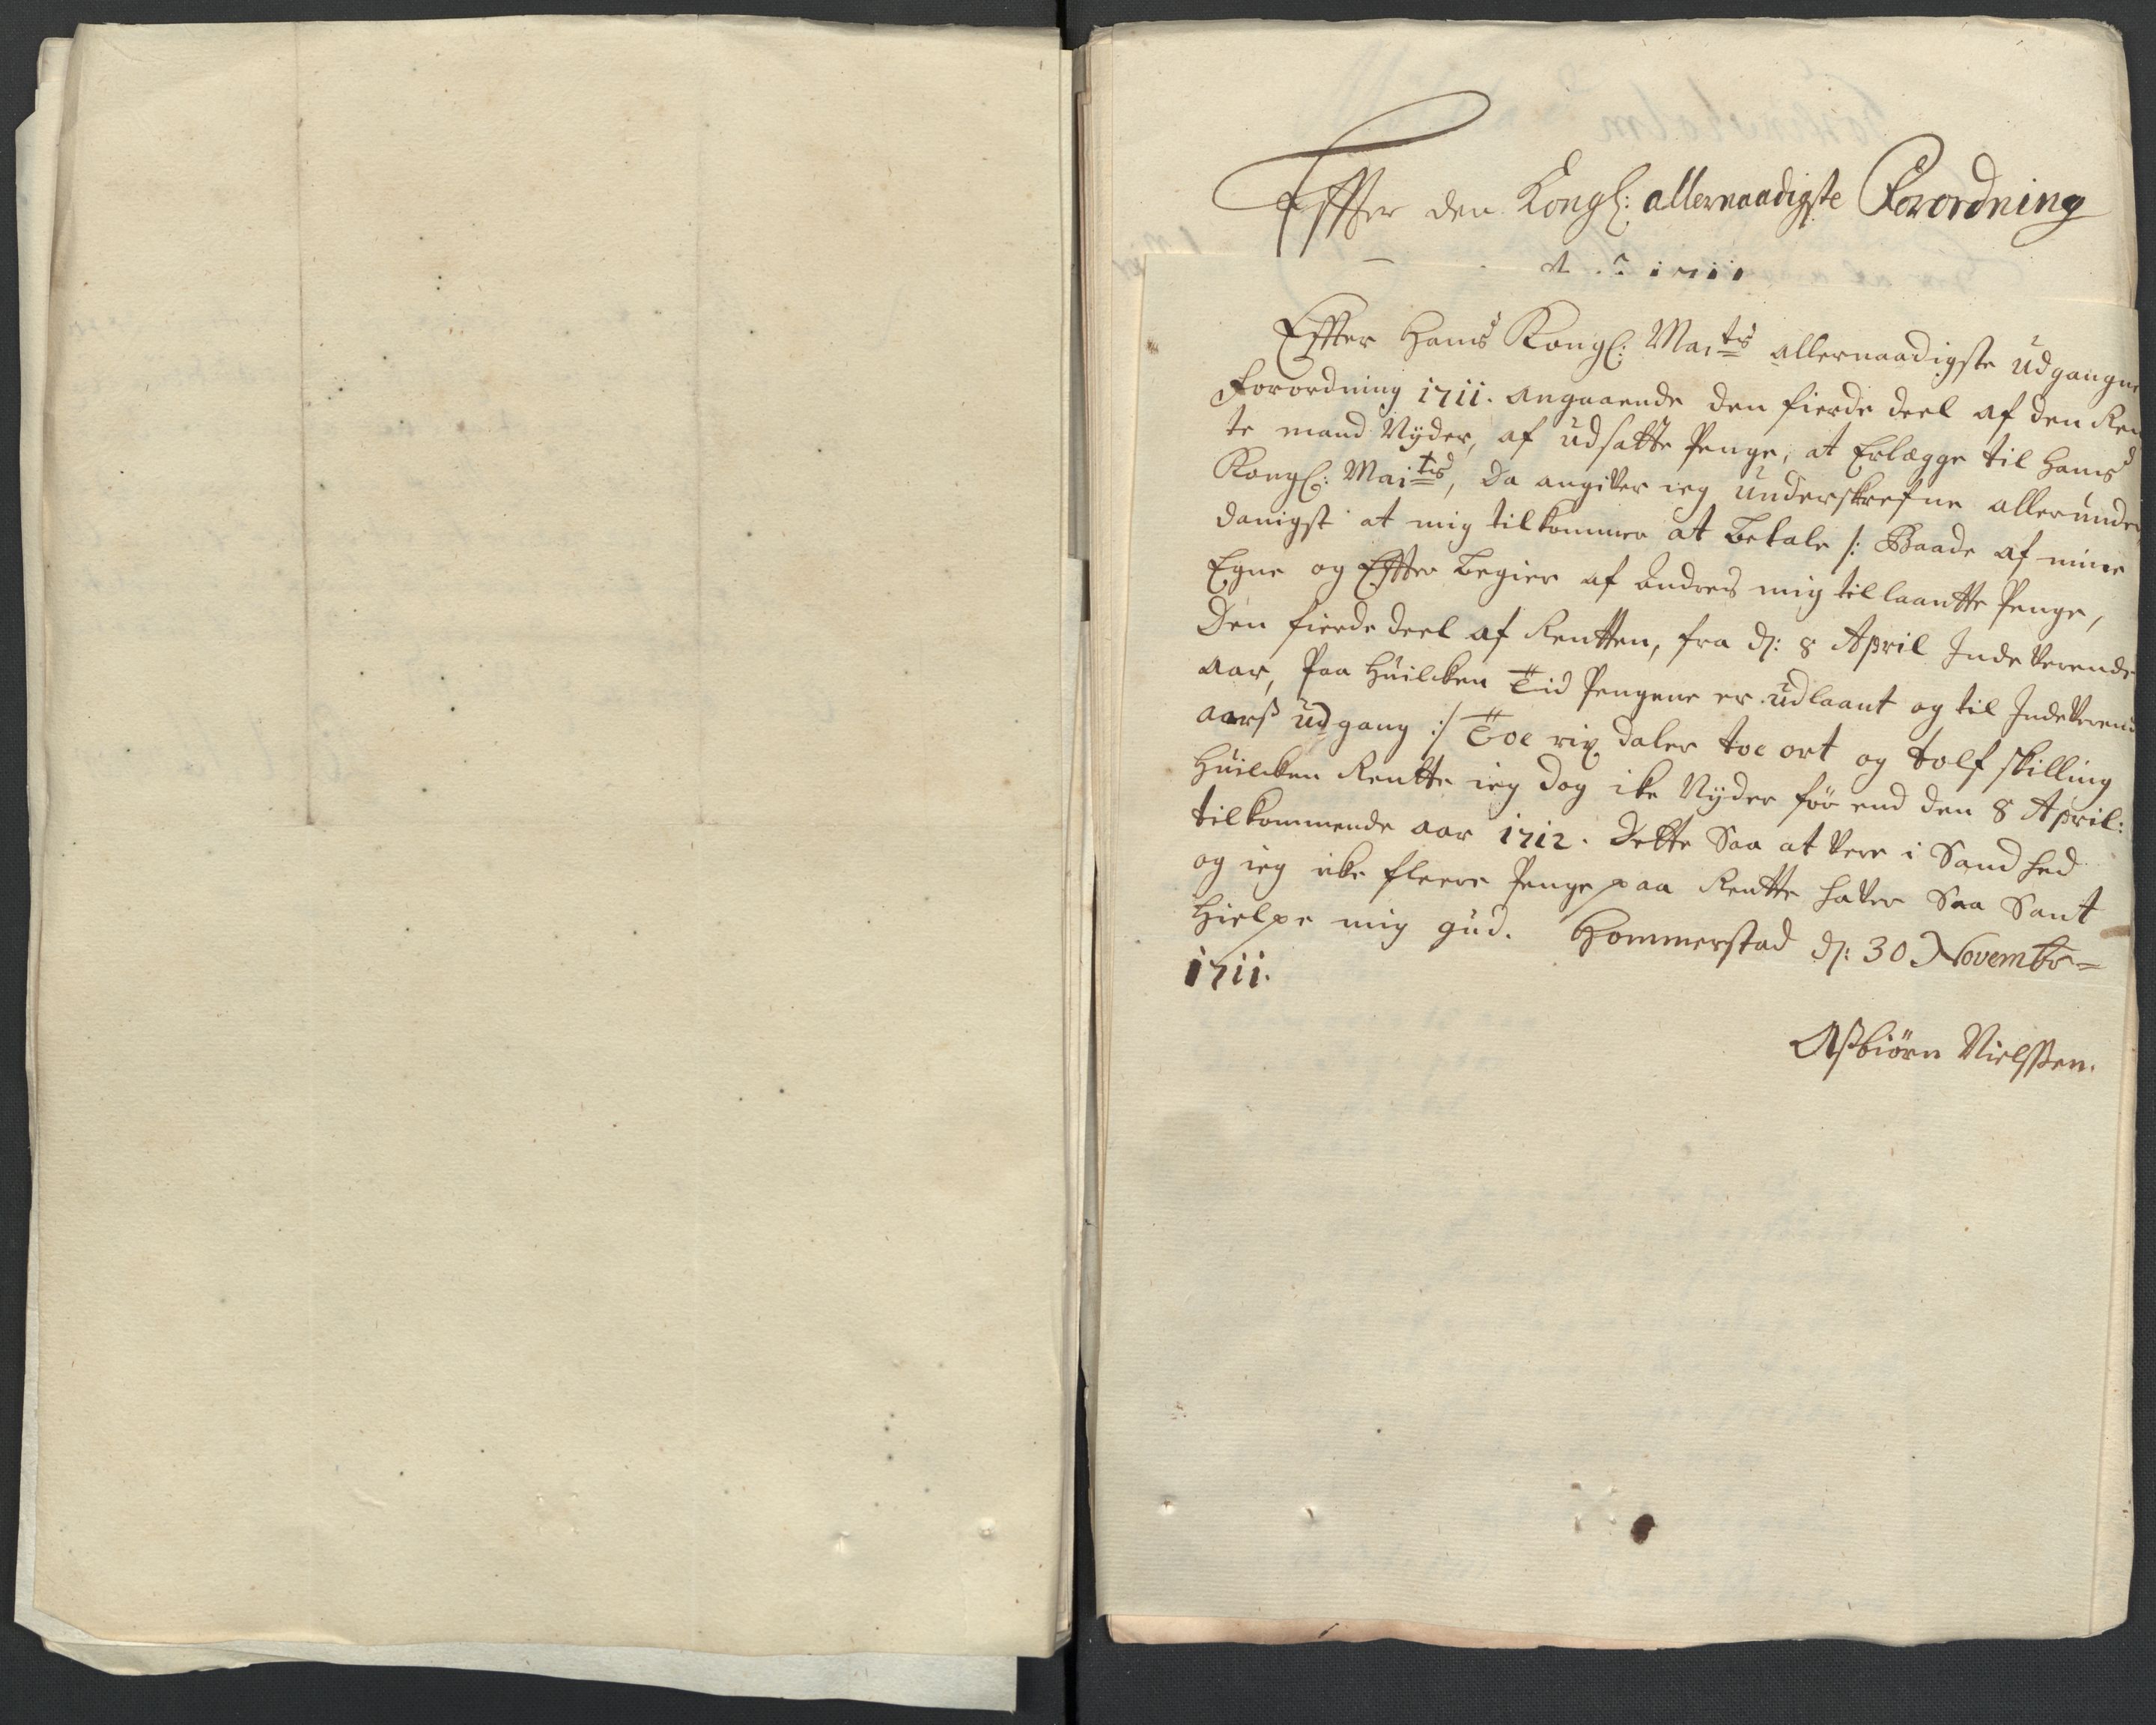 Effter den Kongl: allernaadigste Forordning
1711
Effter Hans Kongl: Maits allernaadigste udgangne
Forordning 1711. angaaende den fierde deel af den Ren
te mand Nyder, af udsatte Penge, at Erlægge til Hans
Kongl: Maits, Da angiver ieg underskrefne allerunder
danigst at mig tilkommer at betale /: Baade af mine
Egne og Effter begier af andres mig tillaantte Penge,
Den fierde deel af Rentten, fra d: 8 April Indeverende
aar, paa huilcken Tid Pengene er udlaant og til Indeveren
aarß udgang :/ Toe rix daler toe ort og tolf skilling
huilcken Rentte ieg dog icke Nyder før end den 8 April:
tilkommende aar 1712. Dette saa at vere i Sandhed
og ieg icke fleere Penge paa Rentte haver saa Sant
hielpe mig gud. Hommerstad d: 30 Novembr=
1711.
Aßbiørn Nielssen.